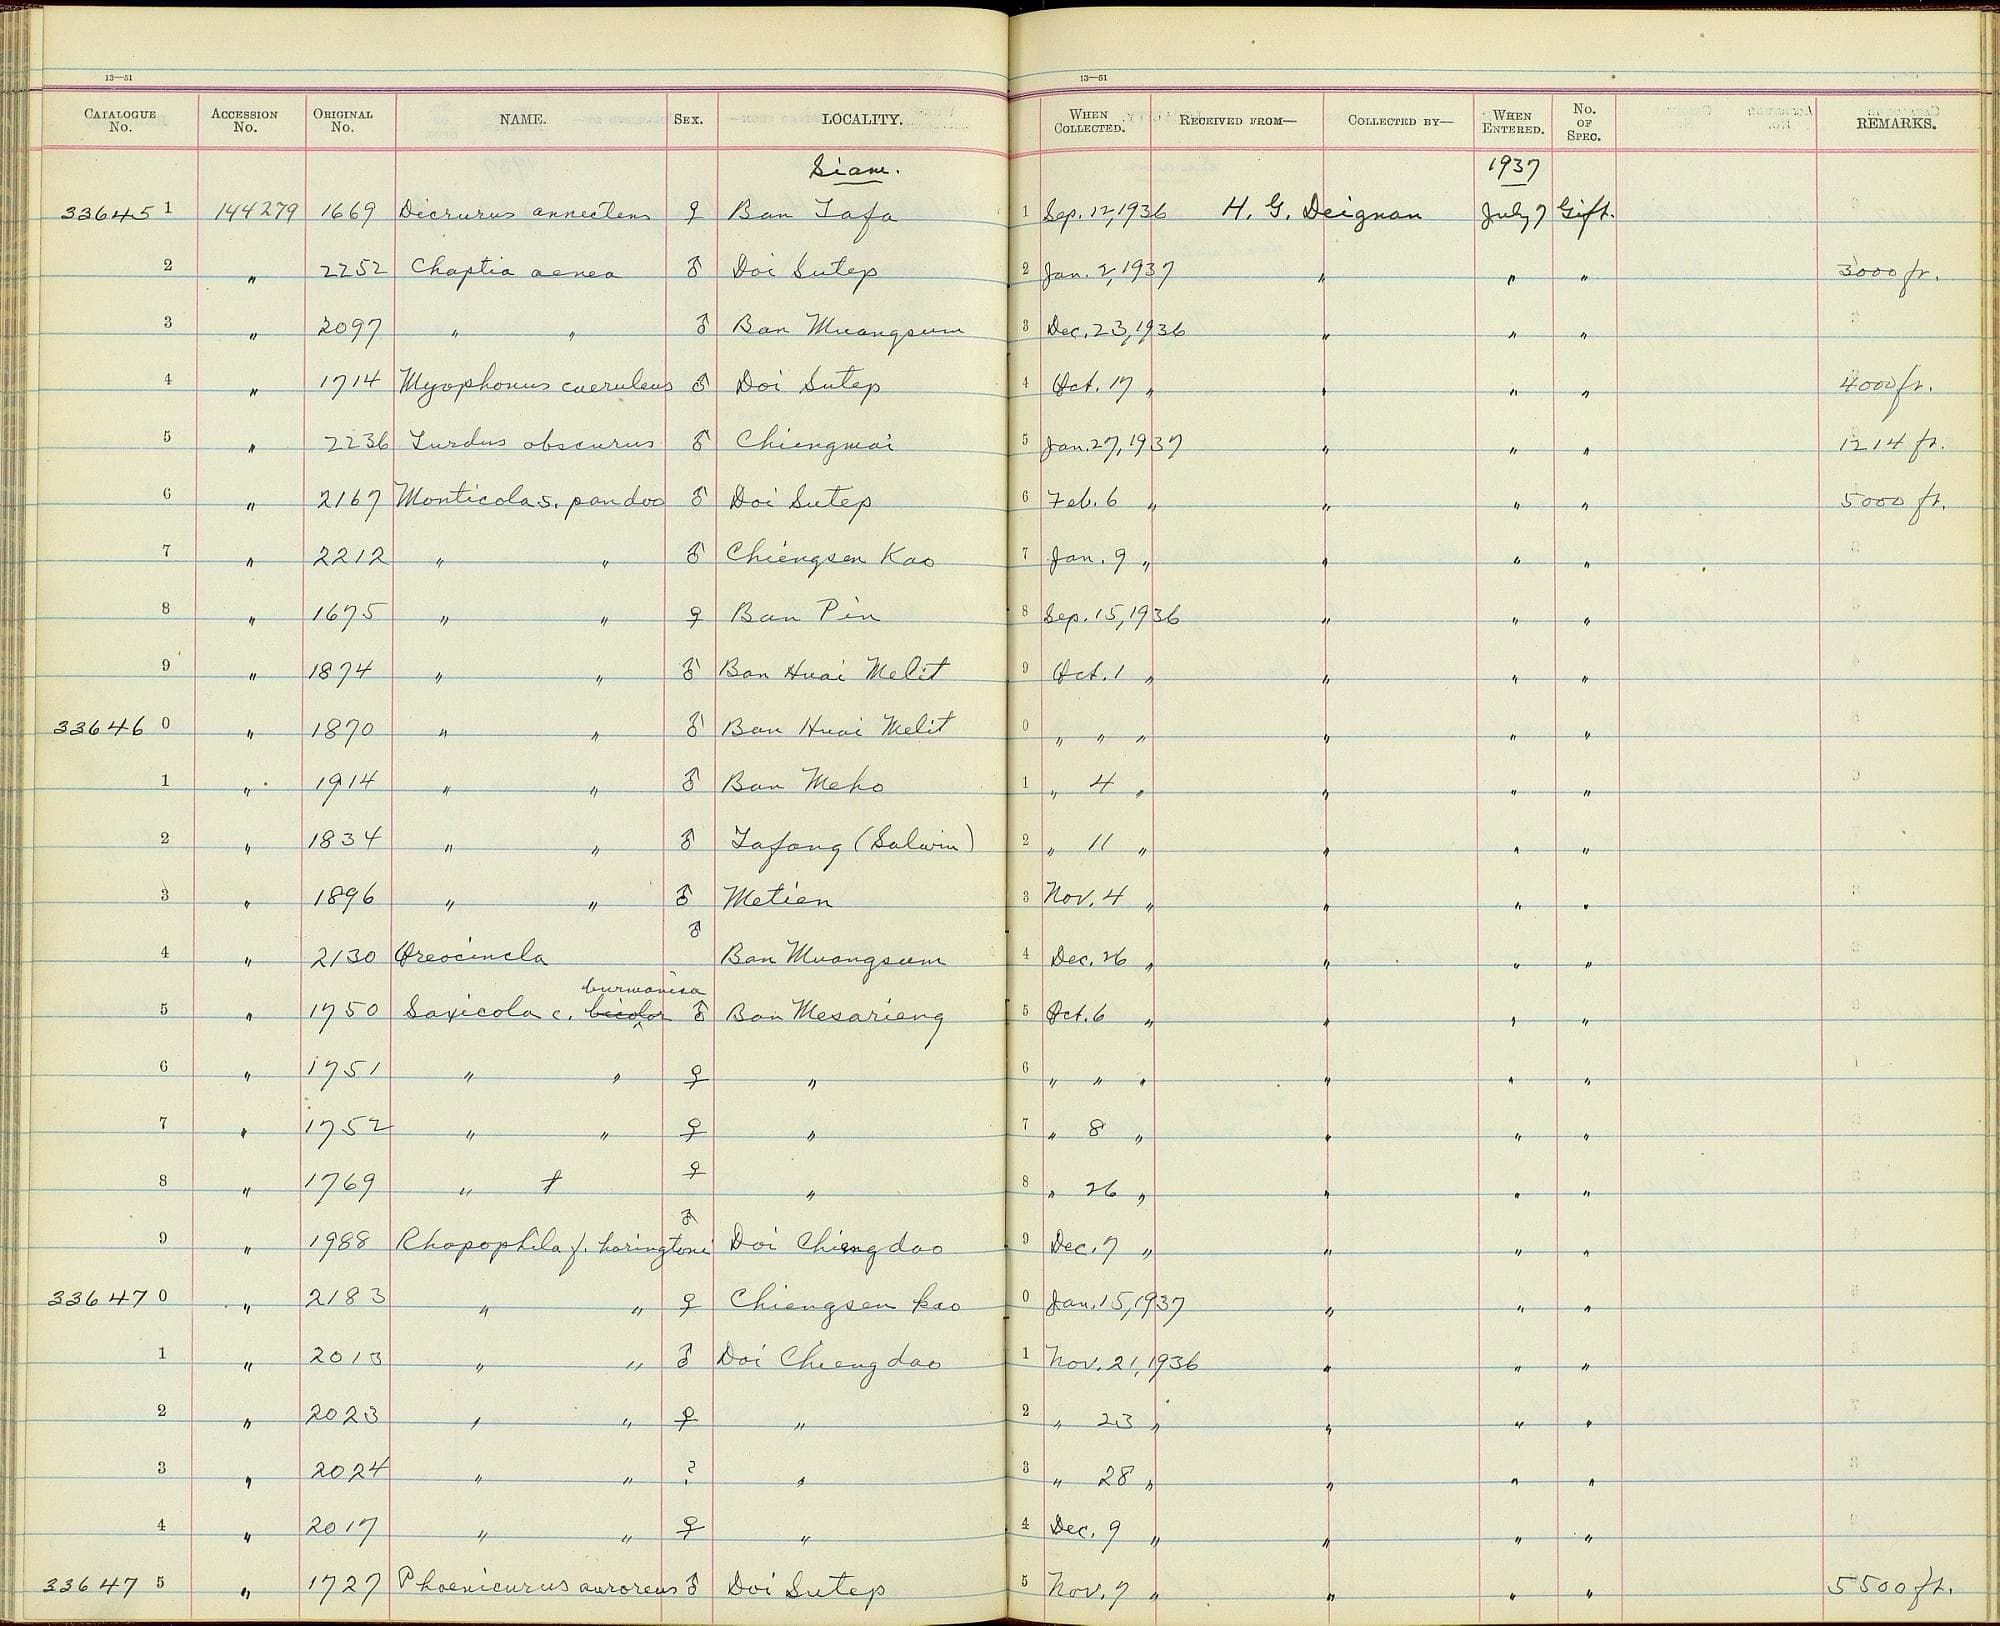 13—51 13—51
CATALOGUE No. ACCESSION No. ORIGINAL No. NAME. SEX. LOCALITY. WHEN COLLECTED. RECEIVED FROM— COLLECTED BY— WHEN ENTERED. No. OF SPEC. REMARKS.
Siam. 1937
33645 1 144279 1669 Dicrurus annectens ♀ Ban Tafa 1 Sep. 12, 1936 H. G. Deignan July 7 Gift.
2 " 2252 Chaptia aenea ♂ Doi Sutep 2 Jan. 2, 1937 " " " 3000 ft.
3 " 2097 " " ♂ Ban Muangsum 3 Dec. 23, 1936 " " "
4 " 1714 Myophonus caeruleus ♂ Doi Sutep 4 Oct. 17 " " " " 4000 ft.
5 " 2236 Turdus obscurus ♂ Chiengmai 5 Jan. 27, 1937 " " " 1214 ft.
6 " 2167 Monticola s. pandoo ♂ Doi Sutep 6 Feb. 6 " " " " 5000 ft.
7 " 2212 " " ♂ Chiengsen Kao 7 Jan. 9 " " " "
8 " 1675 " " ♀ Ban Pin 8 Sep. 15, 1936 " " "
9 " 1874 " " ♂ Ban Huai Melit 9 Oct. 1 " " " "
33646 0 " 1870 " " ♂ Ban Huai Melit 0 " " " " " "
1 " 1914 " " ♂ Ban Meho 1 " 4 " " " "
2 " 1834 " " ♂ Tafang (Salwin) 2 " 11 " " " "
3 " 1896 " " ♂ Metien 3 Nov. 4 " " " "
4 " 2130 Oreocincla ♂ Ban Muangsum 4 Dec. 26 " " " "
burmanica
5 " 1750 Saxicola c. bicolor ♂ Ban Mesarieng 5 Oct. 6 " " " "
6 " 1751 " " ♀ " 6 " " " " " "
7 " 1752 " " ♀ " 7 " 8 " " " "
8 " 1769 " ♀ " 8 " 26 " " " "
9 " 1988 Rhopophila f. haringtoni ♂ Doi Chiengdao 9 Dec. 7 " " " "
33647 0 " 2183 " " ♀ Chiengsen kao 0 Jan. 15, 1937 " " "
1 " 2013 " " ♂ Doi Chiengdao 1 Nov. 21, 1936 " " "
2 " 2023 " " ♀ " 2 " 23 " " " "
3 " 2024 " " ? " 3 " 28 " " " "
4 " 2017 " " ♀ " 4 Dec. 9 " " " "
33647 5 " 1727 Phoenicurus auroreus ♂ Doi Sutep 5 Nov. 7 " " " " 5500 ft.